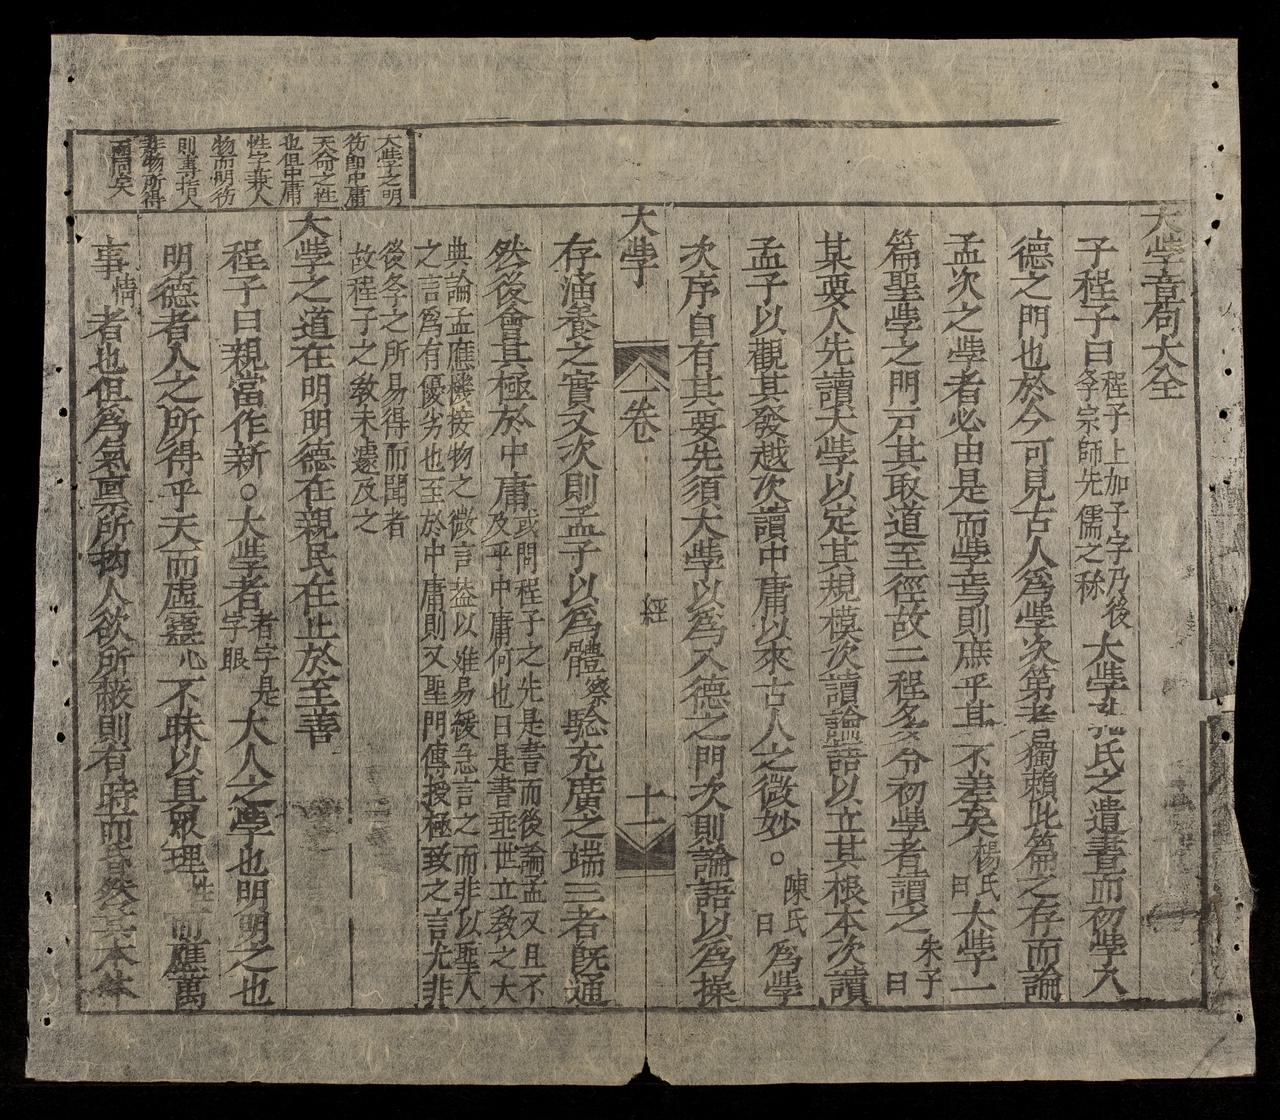 大學章句大全
子程子曰程子上加子字乃後
爹宗師先儒之稱大學孔氏之遺書而初學入
德之門也於今可見古人爲學次第者獨賴此篇之存而論
孟次之學者必由是而學焉則庶乎其不差矣楊氏
曰大學一
篇聖學之門戶其取道至徑故二程多令初學者讀之朱子
曰
某要人先讀大學以定其規模次讀論語以立其根本次讀
孟子以觀其發越次讀中庸以求古人之微妙。陳氏
曰爲學
次序自有其要先須大學以爲入德之門次則論語以爲操
大學
一卷
經
十一
存涵養之實又次則孟子以爲體察驗充廣之端三者旣通
然後會其極於中庸或問程子之先是書而後論孟又且不
及乎中庸何也曰是書垂世立敎之大
典論孟應機接物之微言益以難易緩急言之而非以聖人
之言爲有優劣也至於中庸則又聖門傳授極致之言尤非
後爹之所易得而聞者
故程子之敎未遽及之
大學之道在明明德在親民在止於至善
大學之明
德卽中庸
天命之性
也但中庸
性字兼人
物而明德
則專指人
非物所得
而同矣
程子曰親當作新。大學者者字是
字眼大人之學也明明之也
明德者人之所得乎天而虛靈心不昧以具衆理性而應萬
事情者也但爲氣稟所拘人欲所蔽則有時而昏然其本體